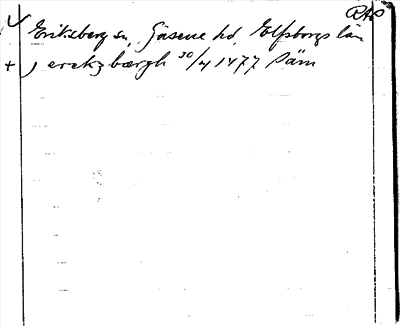 RAP
Eriksberg sn, Gäsene hd, Elfsborgs län
+ j erekzbærgh 30/4 1477 Päm